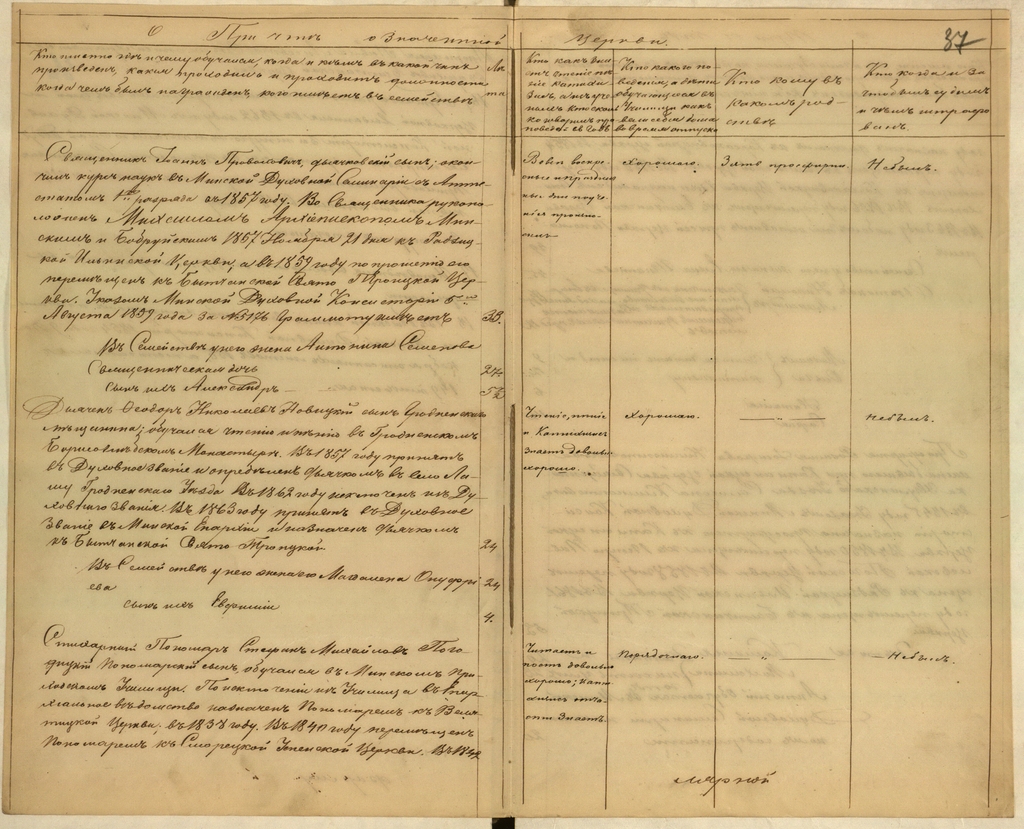 О Причтѣ означенной Церкви. 37
Кто именно гдѣ и чему обучался, когда и кѣмъ въ какой чинъ
произведенъ, какія проходилъ и проходитъ должности
когда чемъ былъ награжденъ, кого имѣетъ въ семействѣ
Лѣ
та
Кто какъ знаетъ чтеніе пѣніе катихизисъ
Кто какого поведенія, а дѣти обучающіяся въ Училищѣ какъ вели себя дома во время отпуска
Кто кому въ
какомъ род-
ствѣ
Кто когда и за
что былъ судимъ
и чѣмъ штрафо
ванъ.
Священникъ Іоаннъ дьячковскій сынъ; окон-
чилъ курсъ наукъ въ Минской Духовной Семинаріи съ Атте-
статомъ 1го разряда въ 1857 году. Во Священника рукопо-
ложенъ Михаиломъ Архіепископомъ Мин-
скимъ и Бобруйскимъ 1857 Ноября 21 дня къ
кой Ильинской Церкви, а въ 1859 году по прошенію его
перемѣщенъ къ Бытчанской Свято Троицкой Цер-
кви. Указомъ Минской Духовной Консисторіи 5го
Августа 1859 года за № 5176 Граммоту имѣетъ 33.
Во вся воскре-
сные и праздни
ные дни поуче-
нія произно-
ситъ
хорошаго.
Зять просфирни.
Небылъ.
Въ Семействѣ у него жена Антонина Семенова
Священническая дочь 24
сынъ ихъ Александръ 5½
Дьячекъ Ѳеодоръ Николаевъ Новицкій сынъ Гродненскаго
мѣщанина; обучался чтенію и пѣнію въ Гродненскомъ
Борисоглѣбскомъ Монастырѣ. Въ 1857 году принятъ
въ Духовное званіе и опредѣленъ дьячкомъ въ село Ла-
шу Гродненскаго Уѣзда Въ 1862 году исключенъ изъ Ду-
ховнаго Званія. Въ 1863 году принятъ въ Духовное
Званіе въ Минской Епархіи и назначенъ дьячкомъ
къ Бытчанской Свято Троицкой 24
Чтеніе, пѣніе
и Катихизисъ
знаетъ довольно
хорошо.
хорошаго.
— „ —
небылъ.
Въ Семействѣ у него жена его Магдалена Онуфрі 24
ева
сынъ ихъ Евфимій
4.
Стихарный Пономарь Стефанъ Михайловъ Пого-
рицкій Пономарскій сынъ, обучался въ Минскомъ При-
ходскомъ Училищѣ. По исключеніи изъ Училища въ Епар-
хіальное вѣдомство назначенъ Пономаремъ къ Веля-
тицкой Церкви, въ 1838 году. Въ 1840 году перемѣщенъ
Пономаремъ къ Успенской Церкви. Въ 1842
Читаетъ и
поетъ довольно
хорошо; Кати-
хизисъ отча-
сти Знаетъ.
порядочнаго.
— „ —
— Небылъ.